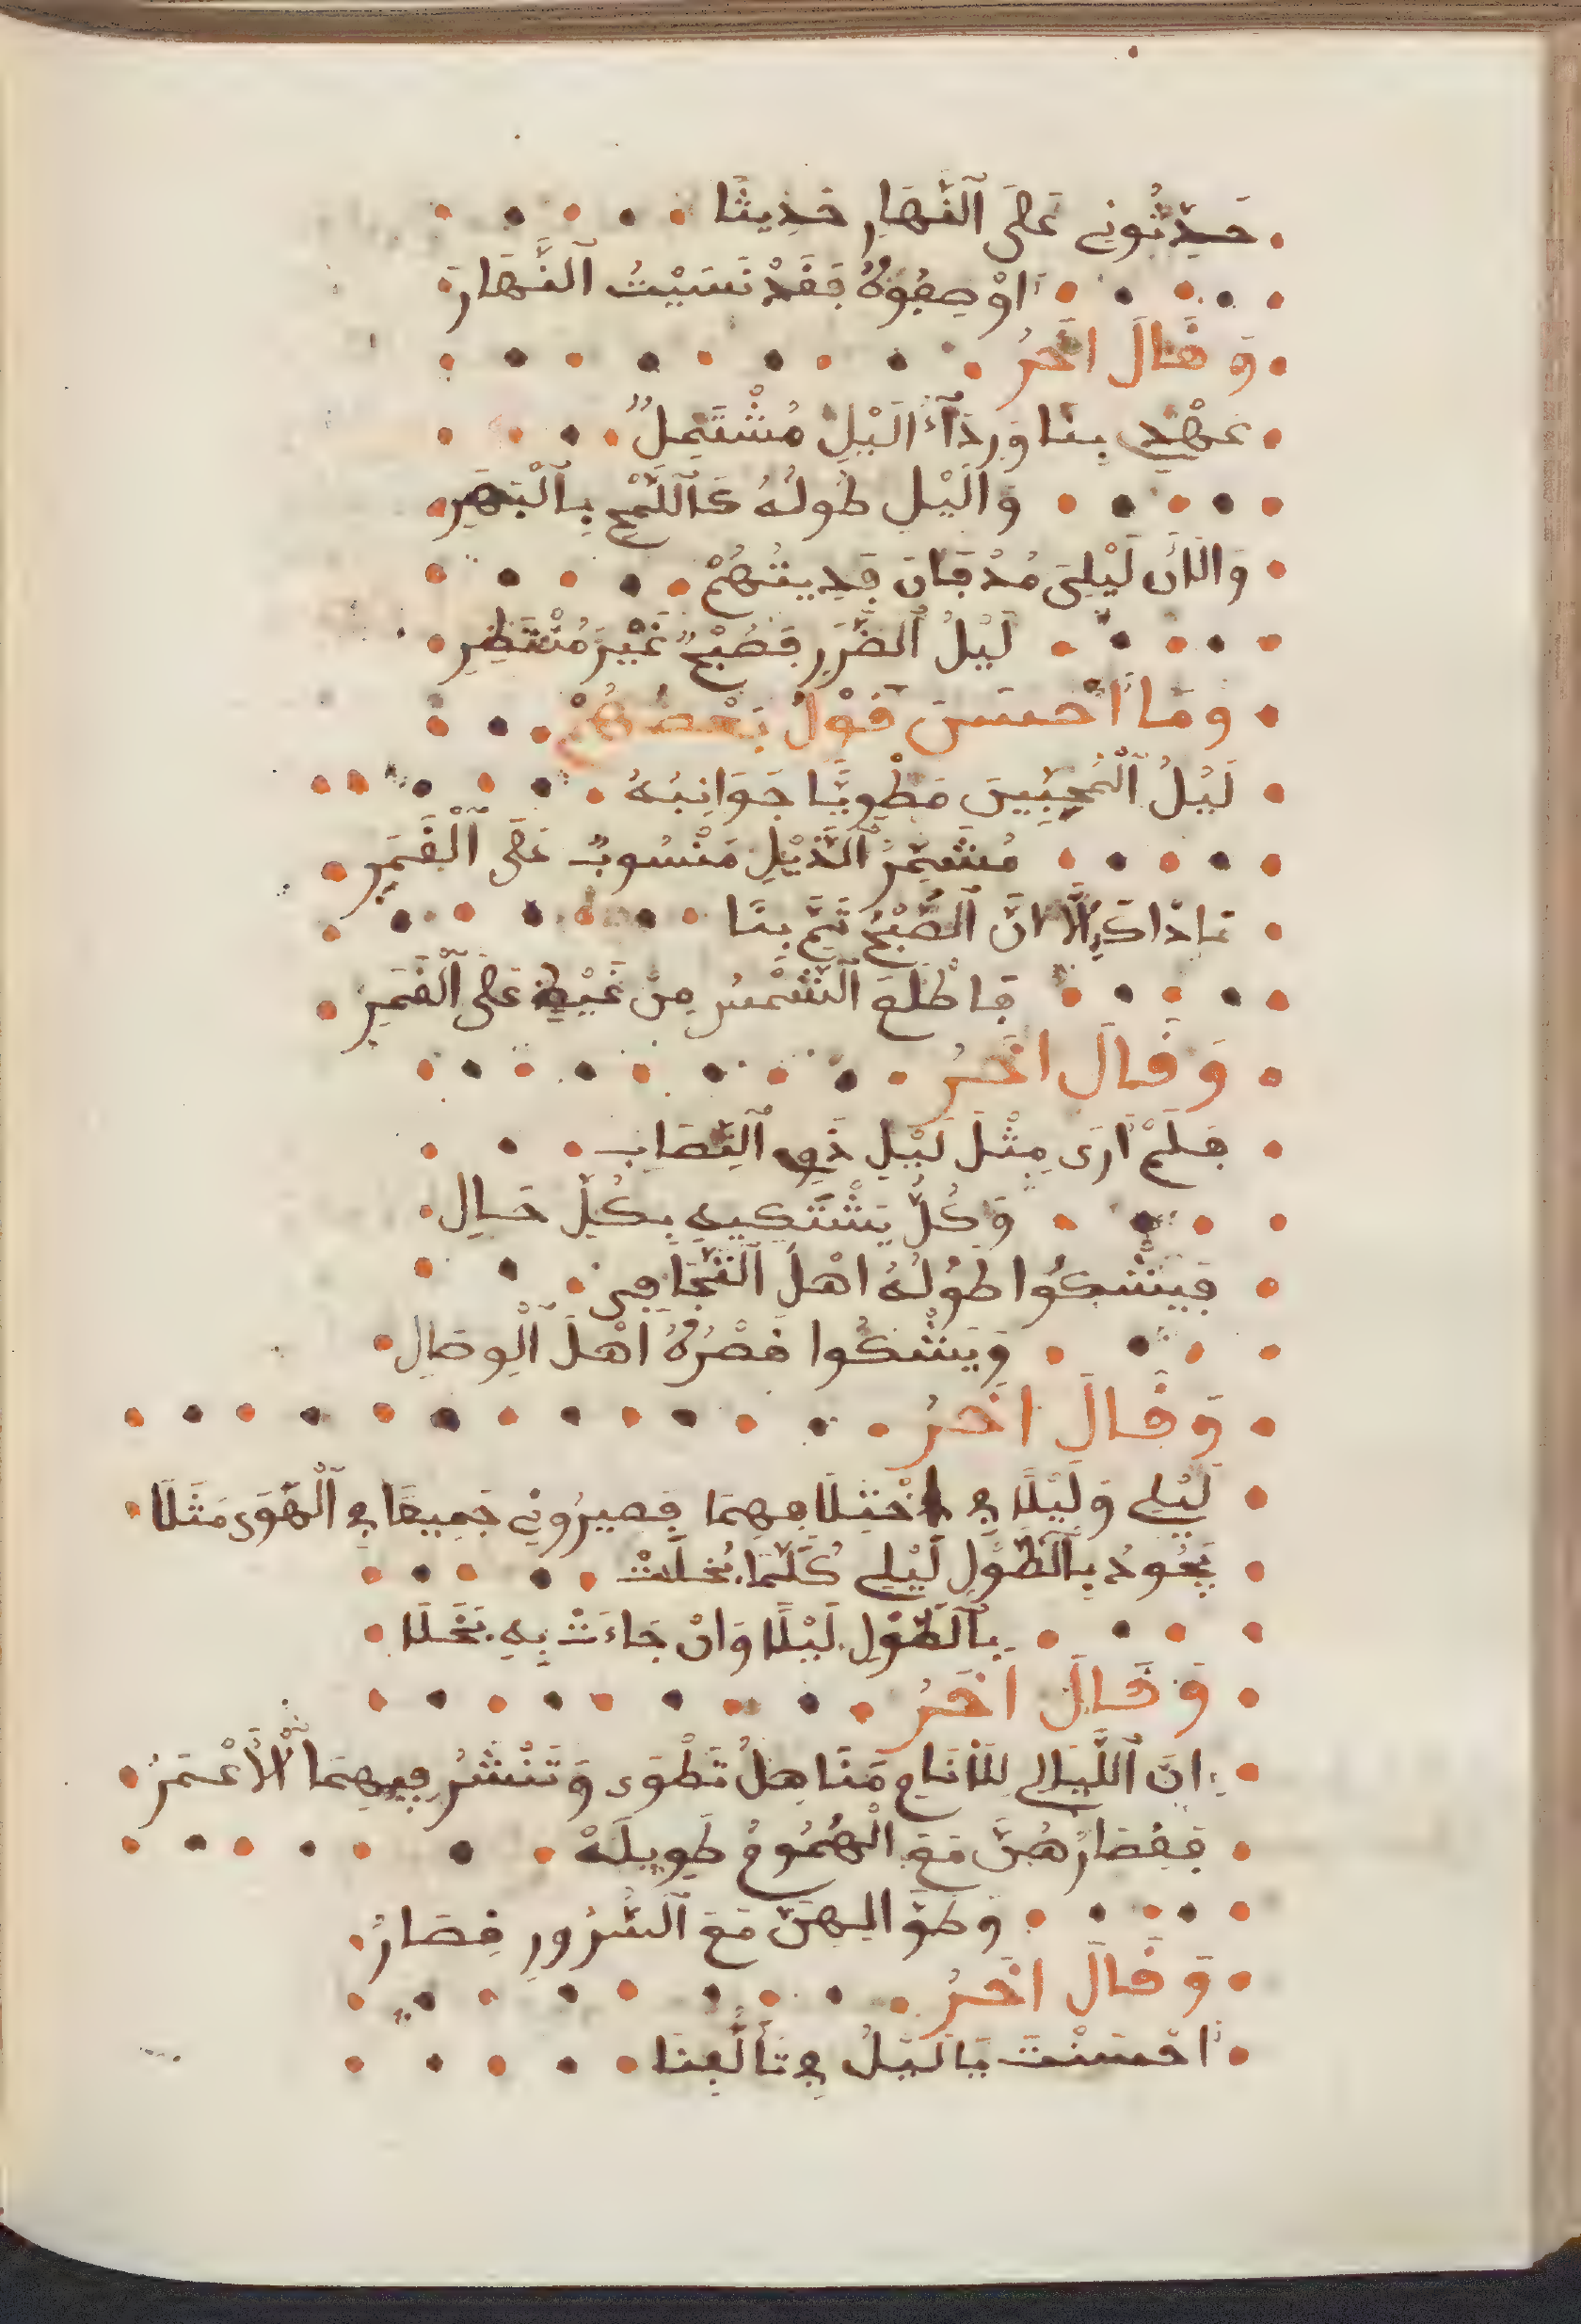 حَدِّثُونِي عَلَى ٱلنَّهَارِ حَدِيثًا
اوْ صِفُوهُ فَقَدْ نَسَيْتُ ٱلنَّهَارَ
وَقَالَ اخَرُ
عَهْدِي بِنَا وَرِدَآءُ الَّيْلِ مُشْتَمِلٌ
وَالَّيْلِ طُولُهُ كَٱللَّمْحِ بِٱلْبَصَرِ
وَالَانَ لَيْلِىَ مُذْ بَانَ فَدِيتُهُمْ
لَيْلُ ٱلضَّرَرِ فَصُبْحٌ غَيْرَ مُنْتَظِرِ
وَمَا أَحْسَنَ قَوْلَ بَعْضِهُمْ
لَيْلُ ٱلْمُحِبِّينَ مَطْوِيًّا جَوَانِبُهُ
مُشَمِّرُ ٱلذَّيْلِ مَنْسُوبٌ عَلَى ٱلْقَمَرِ
مَا ذَاكَ إِلَّا انَّ ٱلصُّبْحَ نَمَّ بِنَا
فَاطْلَعَ ٱلشَّمْسُ مِنْ غَيْظٍ عَلَى ٱلْقَمَرِ
وَقَالَ اخَرُ
فَلَمْ أَرَى مِثْلَ لَيْلِ ذَوِي ٱلتَّصَابِ
وَكُلُّ يَشْتَكِيهِ بِكُلِّ حَالِ
فَيَشْكُوا طُولُهُ اهْلُ ٱلتَّجَافِى
وَيَشْكُوا قَصْرُهُ أَهْلَ ٱلْوِصَالِ
وَقَالَ اخَرُ
لَيْلِي وَلَيْلًا فِي اخْتِلَافِهِمَا فَصِيرُونِي جَمِيعًا فِي ٱلْهَوَى مَثَلَا
يَجُودُ بِٱلطُّولِ لَيْلِي كُلَّمَا بَخُلَتْ
بِٱلطُّولِ لَيْلًا وَانْ جَاءَتْ بِهِ بَخَلَا
وَقَالَ اخَرُ
إِنَّ ٱللَّيَالِي لِلْأَنَامِ مَنَاهِلُ تُطْوَى وَتَنْشُرُ فِيهِمَا ٱلْأَعْمَرُ
فَقِصَارُهُنَّ مَعَ الْهُمُومُ طَوِيلَهْ
وَطَوَّالِهِنَّ مَعَ ٱلسُّرُورِ قِصَارُ
وَقَالَ اخَرُ
أَحْسَنْتَ يَا لَيْلُ فِي تَأَلُّفِنَا